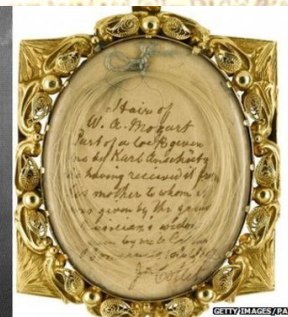 Hair of
W. A. Mozart
Part of a lock given
me by Karl Anschütz
having received it from
his mother to whom it
was given by the great
musician's widow
given by me to
GETTY IMAGES/PA